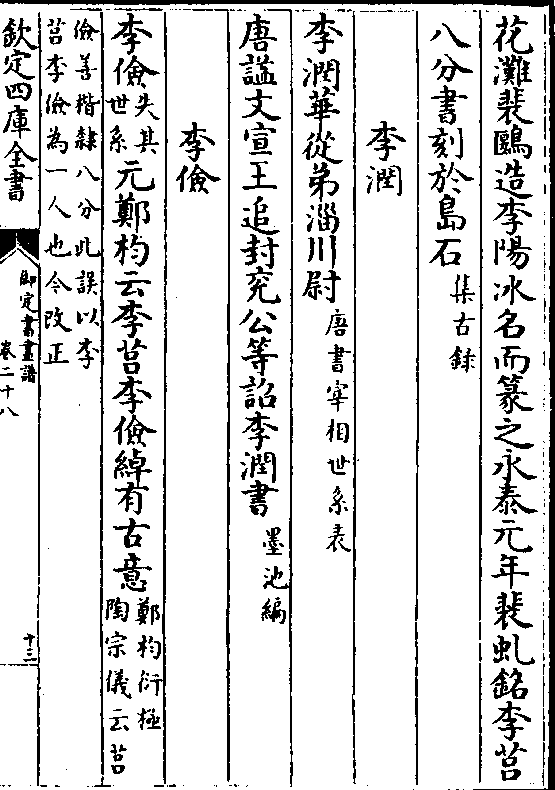 花灘裴鷗造李陽冰名而篆之永泰元年裴虬銘李莒
八分書刻於島石集古録
李潤
李潤華從弟淄川尉唐書宰相世系表
唐謚文宣王追封兖公等詔李潤書墨池編
李儉
李儉失其世系元鄭杓云李莒李儉綽有古意鄭杓衍極陶宗儀云莒
儉善楷隸八分此誤以李莒李儉為一人也今改正
欽定四庫全書
御定書畫譜
卷二十八
十三